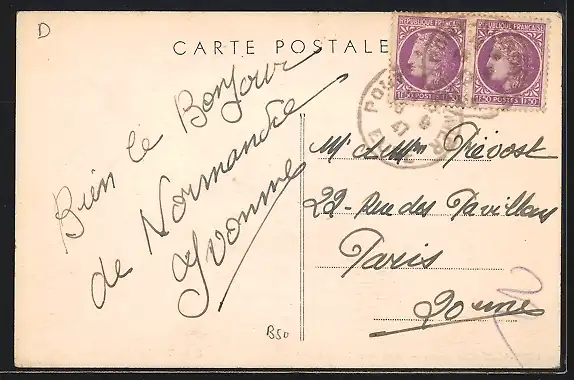 D
CARTE POSTALE
RÉPUBLIQUE FRANÇAISE
RÉPUBLIQUE FRANÇAISE
1F50 POSTES 1F50
1F50 POSTES 1F50
Bien le Bonjour
de Normandie
Yvonne
Mr et Mme Prévost
22 - Rue des Pavillons
Paris
20eme
B50